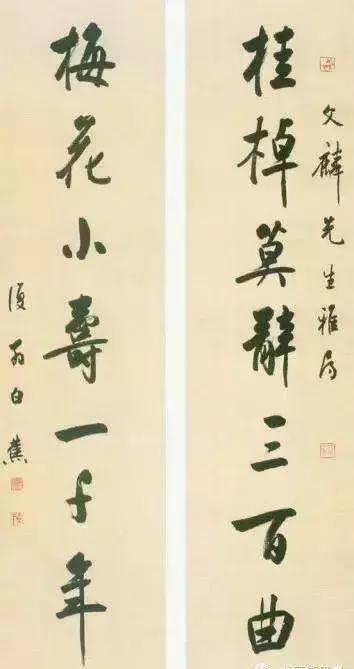 文麟先生雅屬
桂棹莫辭三百曲
梅花小壽一千年
復翁白蕉